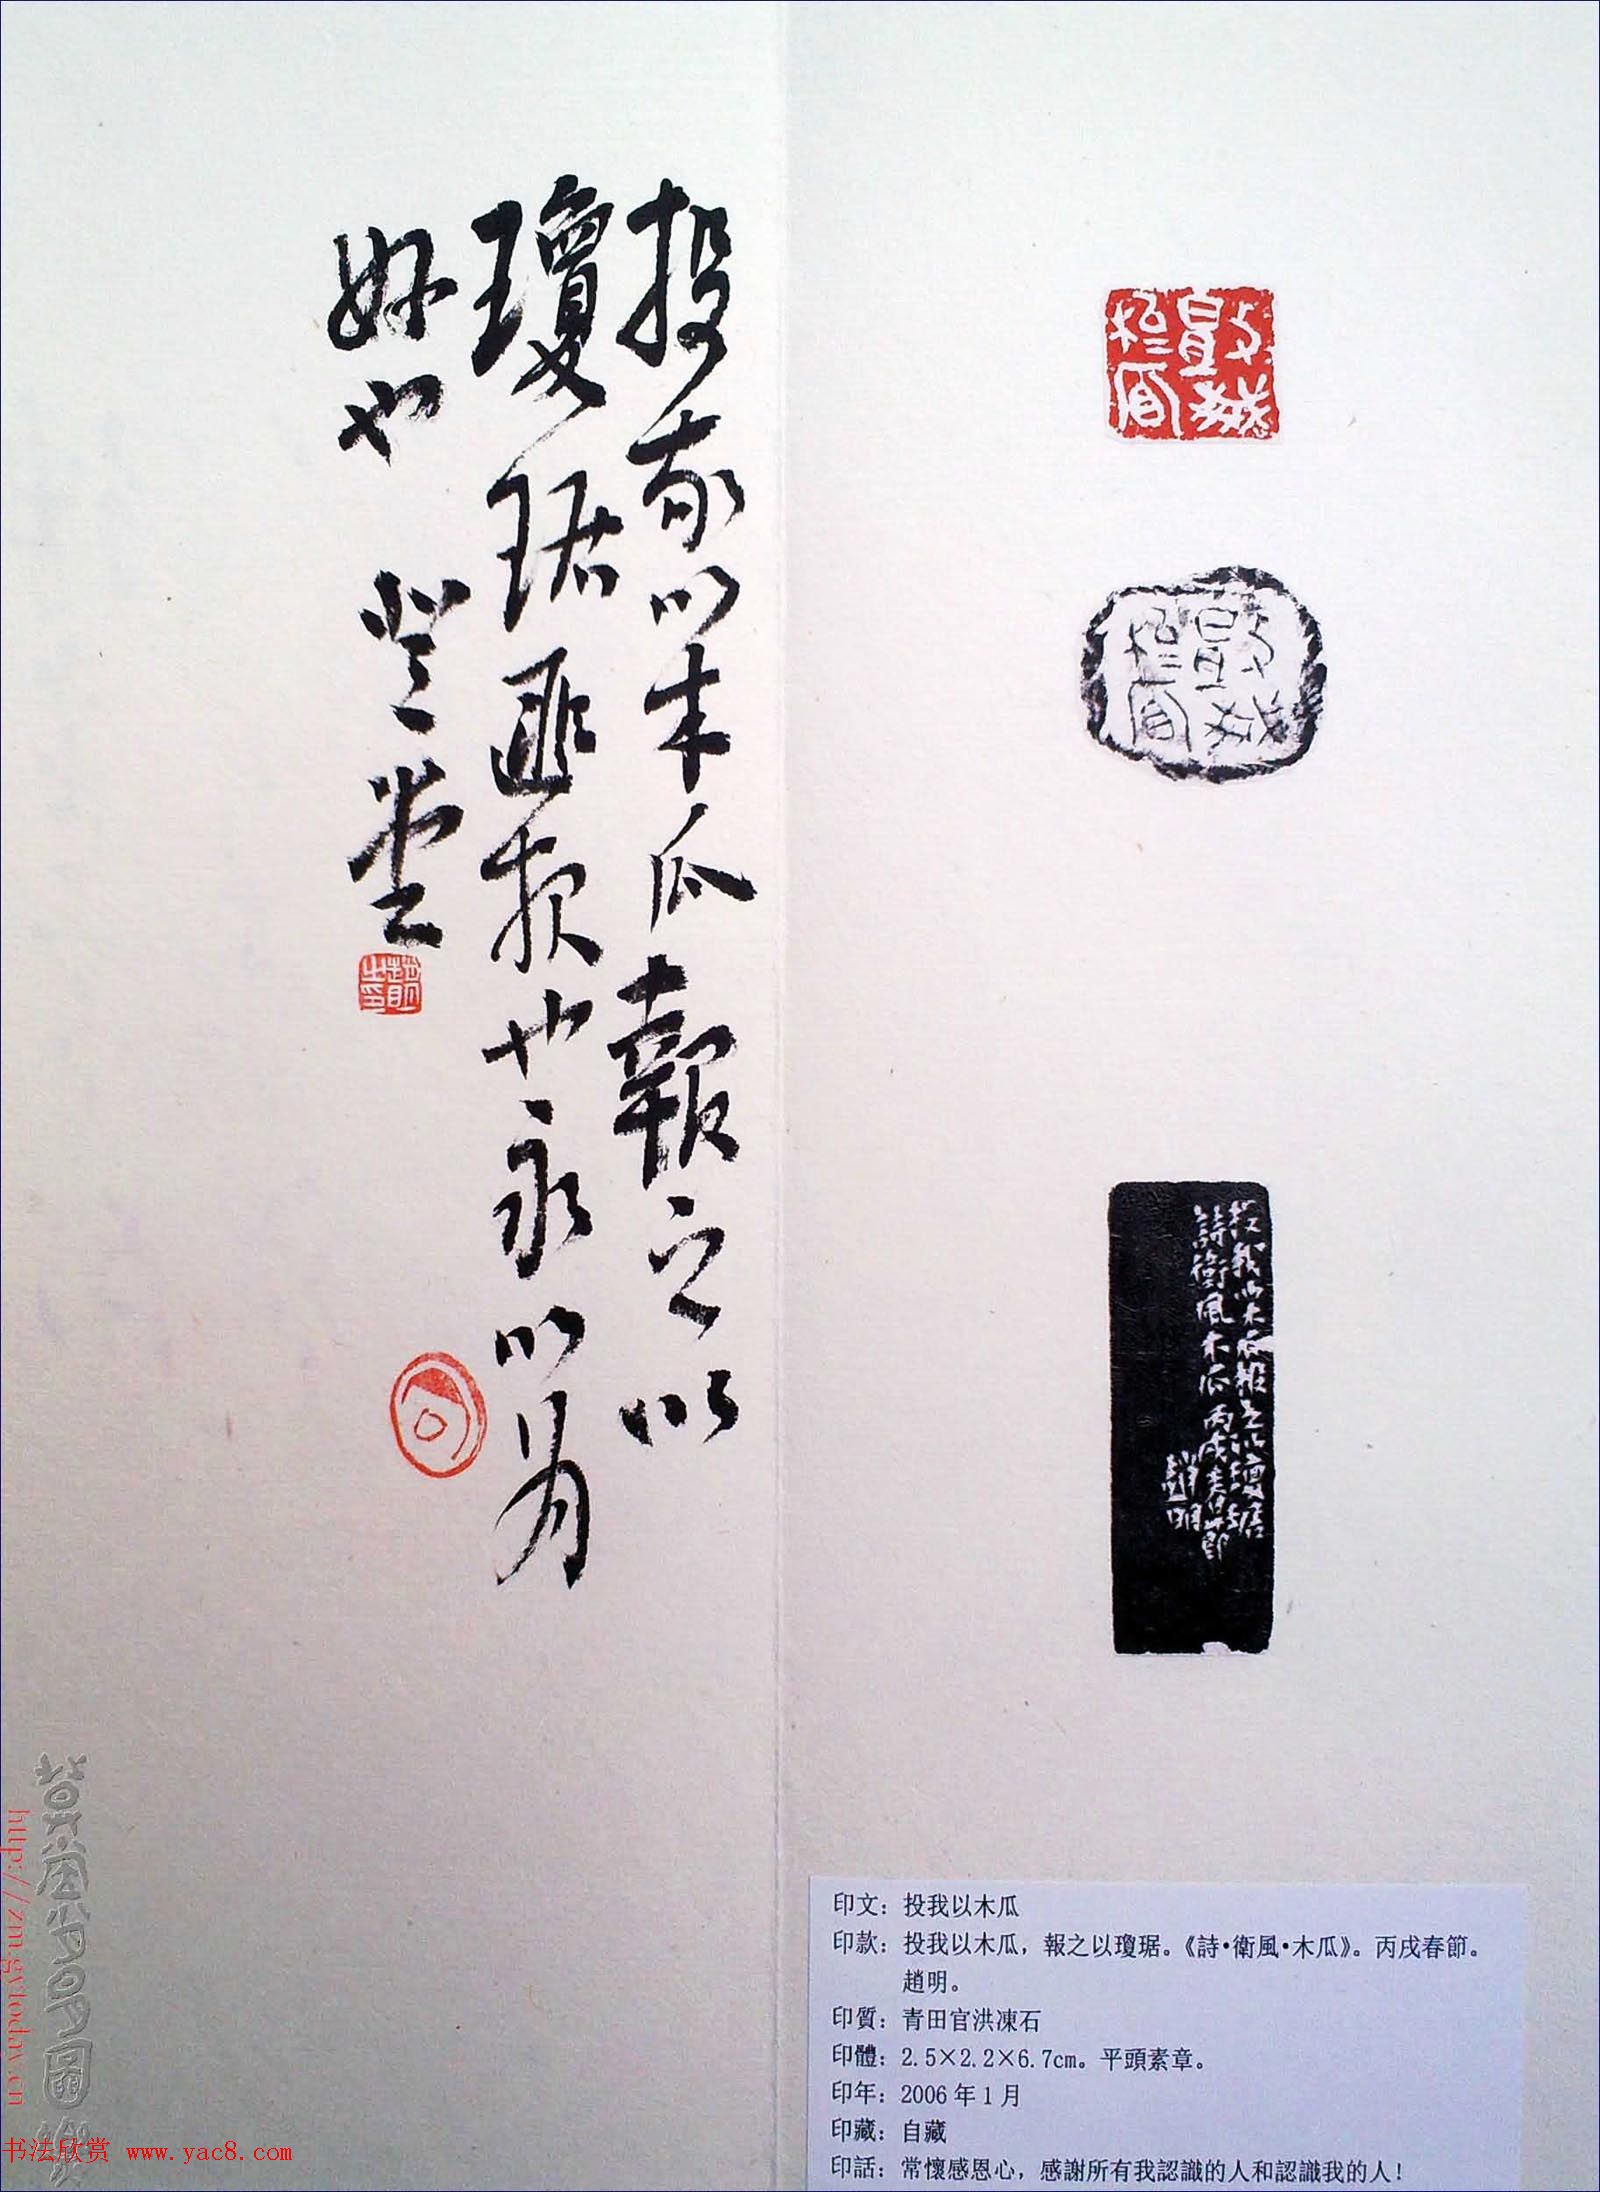 投我以木瓜報之以
瓊琚匪報也永以為
好也 登堂
投我以木瓜報之以瓊琚
詩衛風木瓜丙戌春節
趙明
印文：投我以木瓜
印款：投我以木瓜，報之以瓊琚。《詩•衛風•木瓜》。丙戌春節。
趙明。
印質：青田官洪凍石
印體：2.5×2.2×6.7cm。平頭素章。
印年：2006年1月
印藏：自藏
印話：常懷感恩心，感謝所有我認識的人和認識我的人！
http://zmgytoday.cn
书法欣赏 www.yac8.com